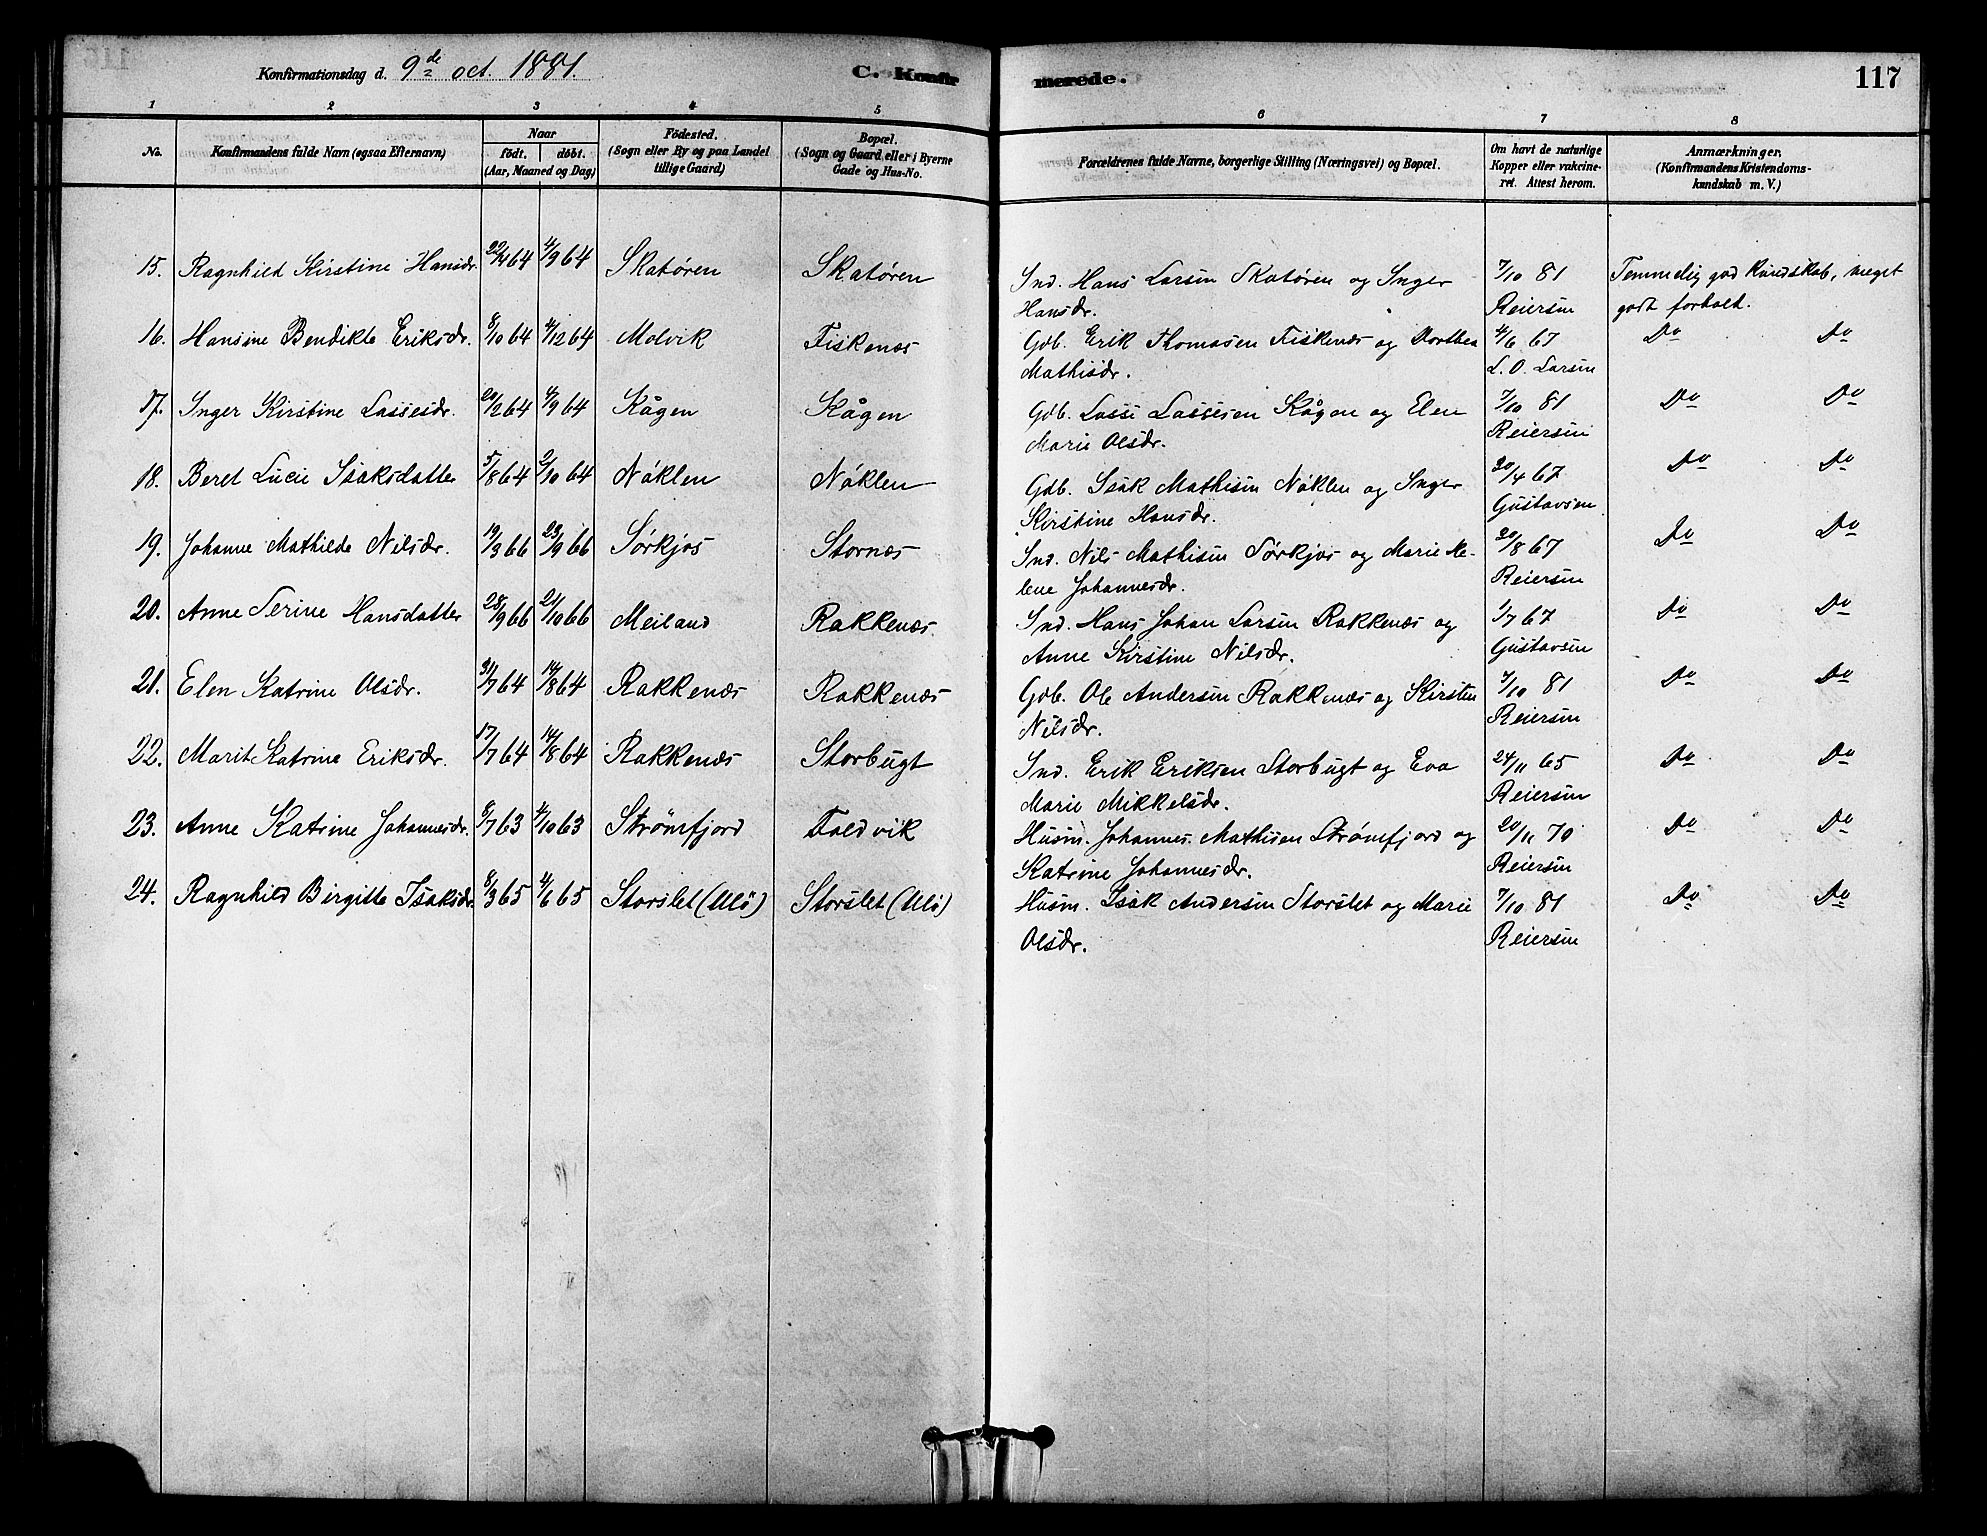 Konfirmationsdag d. 9de oct. 1881. C. Konfir merede. 117
1 2 3 4 5 6 7 8
No. Konfirmandens fulde Navn (ogsaa Efternavn) Naar født. døbt. (Aar, Maaned og Dag) Fødested. (Sogn eller By og paa Landet tillige Gaard) Bopæl. (Sogn og Gaard eller i Byerne Gade og Hus-No. Forældrenes fulde Navne, borgerlige Stilling (Næringsvei) og Bopæl. Om havt de naturlige Kopper eller vakcineret. Attest herom. Anmærkninger. (Konfirmandens Kristendomskundskab m. V.)
15. Ragnhild Kirstine Hansdr. 22/4 64 4/9 64 Skatøren Skatøren Ind. Hans Larsen Skatøren og Inger 7/10 81 Temmelig god Kundskab, meget
Hansdr. Reiersen godt forhold.
16. Hansine Bendikte Eriksdr. 8/10 64 4/12 64 Molvik Fiskenæs Gdb. Erik Thomasen Fiskenæs og Dorthea 4/6 67 Do Do
Mathisdr. L. O. Larsen
17. Inger Kirstine Lassesdr. 20/2 64 4/9 64 Kågen Kågen Gdb. Lasse Lassesen Kågen og Elen 7/10 81 Do Do
Marie Olsdr. Reiersen
18. Beret Lucie Isaksdatter 5/8 64 2/10 64 Nøklen Nøklen Gdb. Isak Mathisen Nøklen og Inger 20/4 67 Do Do
Kirstine Hansdr. Gustavsen
19. Johanne Mathilde Nilsdr. 19/3 66 23/9 66 Sørkjos Stornæs Ind. Nils Mathisen Sørkjos og Marie He- 20/8 67 Do Do
lene Johannesdr. Reiersen
20. Anne Serine Hansdatter 28/9 66 21/10 66 Meiland Rakkenæs Ind. Hans Johan Larsen Rakkenæs og 1/7 67 Do Do
Anne Kirstine Nilsdr. Gustavsen
21. Elen Katrine Olsdr. 31/7 64 14/8 64 Rakkenæs Rakkenæs Gdb. Ole Andersen Rakkenæs og Kirsten 7/10 81 Do Do
Nilsdr. Reiersen
22. Marit Katrine Eriksdr. 17/7 64 14/8 64 Rakkenæs Storbugt Ind. Erik Eriksen Storbugt og Eva 24/11 65 Do Do
Marie Mikkelsdr. Reiersen
23. Anne Katrine Johannesdr. 8/7 63 4/10 63 Strømfjord Foldvik Husm. Johannes Mathisen Strømfjord og 20/11 70 Do Do
Katrine Johannesdr. Reiersen
24. Ragnhild Birgitte Isaksdr. 8/3 65 4/6 65 Storslet (Ulø) Storslet (Ulø) Husm. Isak Andersen Storslet og Marie 7/10 81 Do Do
Olsdr. Reiersen